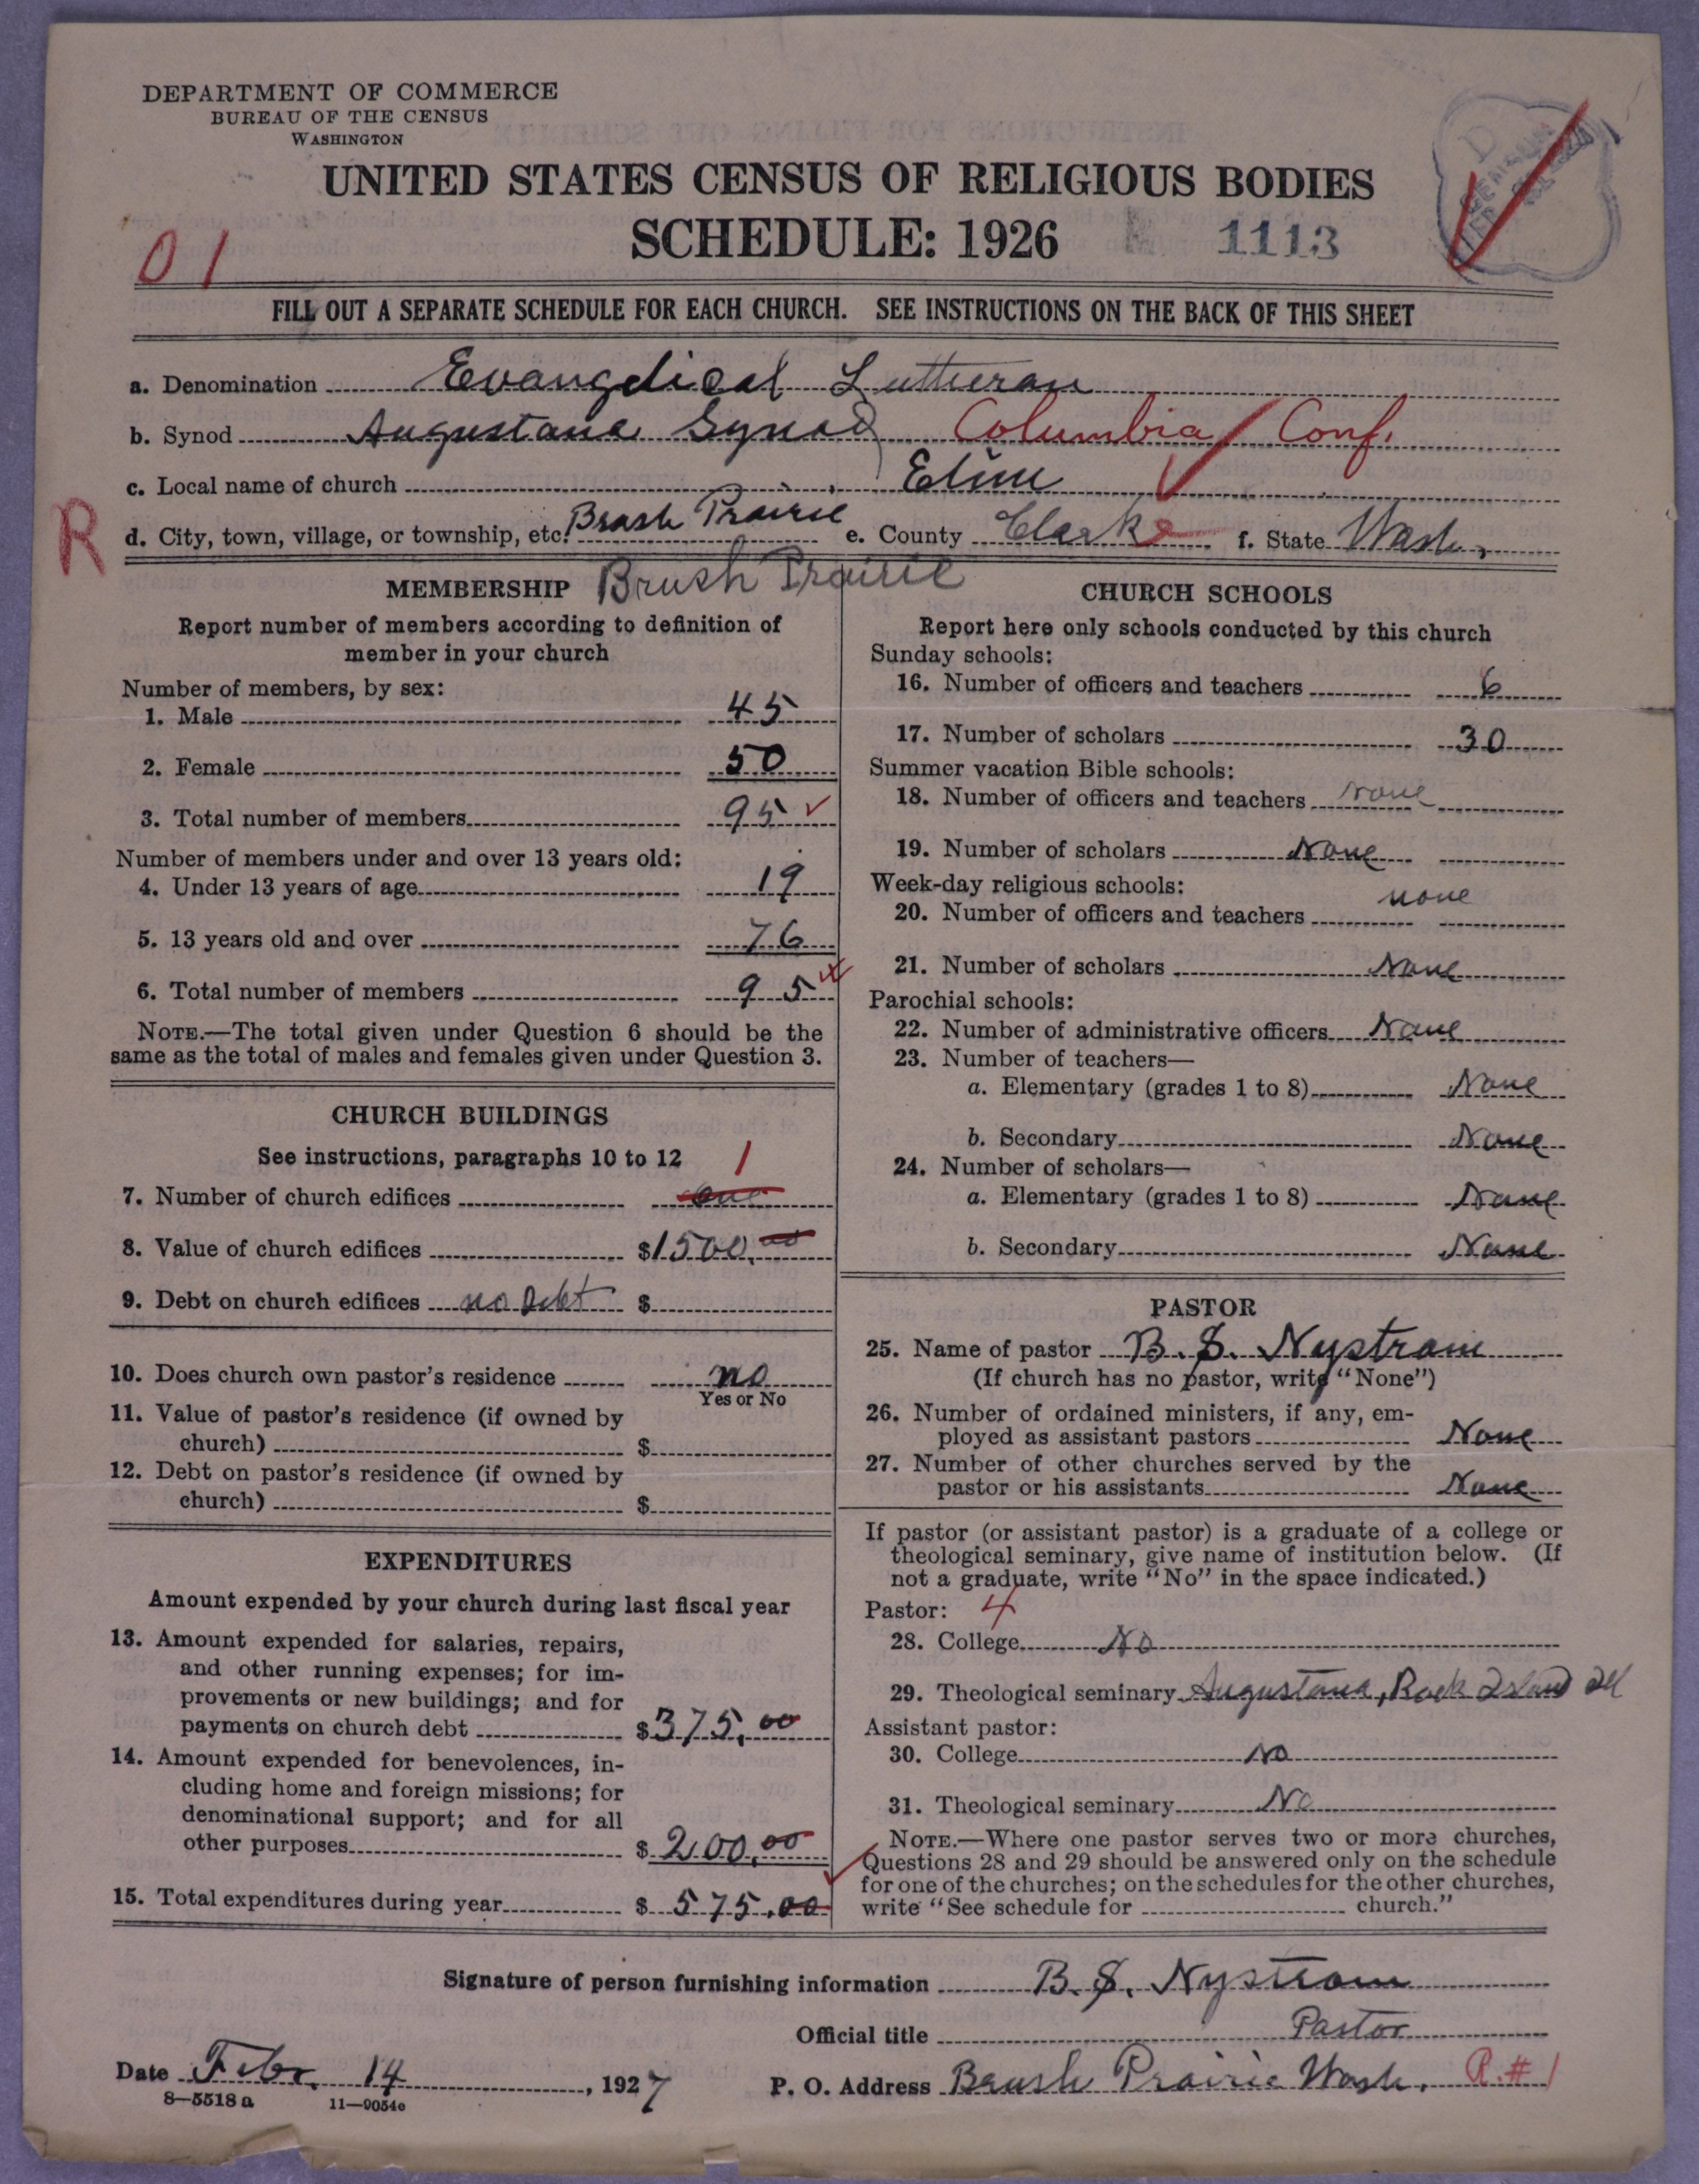 DEPARTMENT OF COMMERCE
BUREAU OF THE CENSUS
WASHINGTON
UNITED STATES CENSUS OF RELIGIOUS BODIES
SCHEDULE: 1926 1113
01
FILL OUT A SEPARATE SCHEDULE FOR EACH CHURCH. SEE INSTRUCTIONS ON THE BACK OF THIS SHEET
a. Denomination Evangelical Lutheran
b. Synod Augustana Synod Columbia Conf.
c. Local name of church Elim
R
d. City, town, village, or township, etc. Brush Prairie e. County Clarke f. State Wash.
Brush Prairie
MEMBERSHIP
Report number of members according to definition of
member in your church
Number of members, by sex:
1. Male 45
2. Female 50
3. Total number of members 95
Number of members under and over 13 years old:
4. Under 13 years of age 19
5. 13 years old and over 76
6. Total number of members 95
NOTE.—The total given under Question 6 should be the
same as the total of males and females given under Question 3.
CHURCH BUILDINGS
See instructions, paragraphs 10 to 12
1
7. Number of church edifices one
8. Value of church edifices $1500.00
9. Debt on church edifices no Debt $
10. Does church own pastor's residence no
Yes or No
11. Value of pastor's residence (if owned by
church) $
12. Debt on pastor's residence (if owned by
church) $
EXPENDITURES
Amount expended by your church during last fiscal year
13. Amount expended for salaries, repairs,
and other running expenses; for im-
provements or new buildings; and for
payments on church debt $375.00
14. Amount expended for benevolences, in-
cluding home and foreign missions; for
denominational support; and for all
other purposes $200.00
15. Total expenditures during year $575.00
CHURCH SCHOOLS
Report here only schools conducted by this church
Sunday schools:
16. Number of officers and teachers 6
17. Number of scholars 30
Summer vacation Bible schools:
18. Number of officers and teachers none
19. Number of scholars None
Week-day religious schools:
20. Number of officers and teachers none
21. Number of scholars None
Parochial schools:
22. Number of administrative officers None
23. Number of teachers—
a. Elementary (grades 1 to 8) None
b. Secondary None
24. Number of scholars—
a. Elementary (grades 1 to 8) None
b. Secondary None
PASTOR
25. Name of pastor B. S. Nystrom
(If church has no pastor, write "None")
26. Number of ordained ministers, if any, em-
ployed as assistant pastors None
27. Number of other churches served by the
pastor or his assistants None
If pastor (or assistant pastor) is a graduate of a college or
theological seminary, give name of institution below. (If
not a graduate, write "No" in the space indicated.)
Pastor: 4
28. College No
29. Theological seminary Augustana, Rock Island Ill
Assistant pastor:
30. College No
31. Theological seminary No
NOTE.—Where one pastor serves two or more churches,
Questions 28 and 29 should be answered only on the schedule
for one of the churches; on the schedules for the other churches,
write "See schedule for church."
Signature of person furnishing information B. S. Nystrom
Official title Pastor
Date Febr. 14, 1927
P. O. Address Brush Prairie Wash. R. #1
8—5518 a 11—9054e